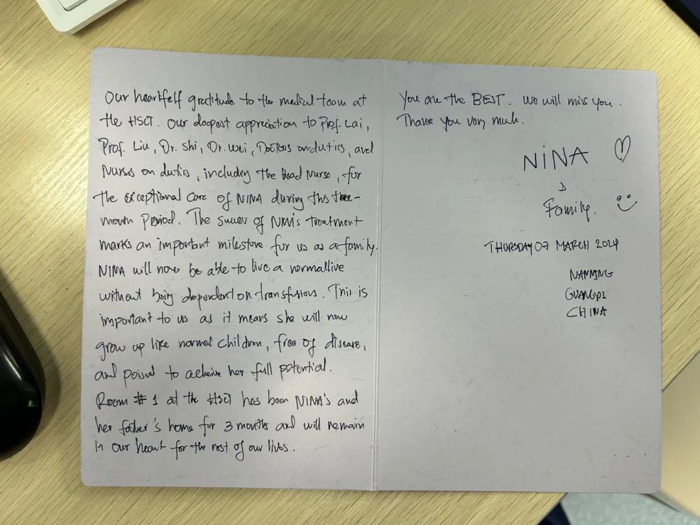 Our heartfelf gratitude to the medical team at
the HSCT. Our deepest appreciation to Prof. Lai,
Prof. Liu, Dr. Shi, Dr. Wei, Doctors on duties, and
Nurses on duties, including the Head Nurse, for
the exceptional care of NINA during this three-
month period. The success of NINA's treatment
marks an important milestone for us as a family.
NINA will now be able to live a normal live
without being dependent on transfusions. This is
important to us as it means she will now
grow up like normal children, free of disease,
and poised to achieve her full potential.
Room #1 at the HSCT has been NINA's and
her father's home for 3 months and will remain
in our heart for the rest of our lives.
You are the BEST. We will miss you.
Thank you very much.
NINA
Family.
THURSDAY 07 MARCH 2024
NANNING
GUANGXI
CHINA